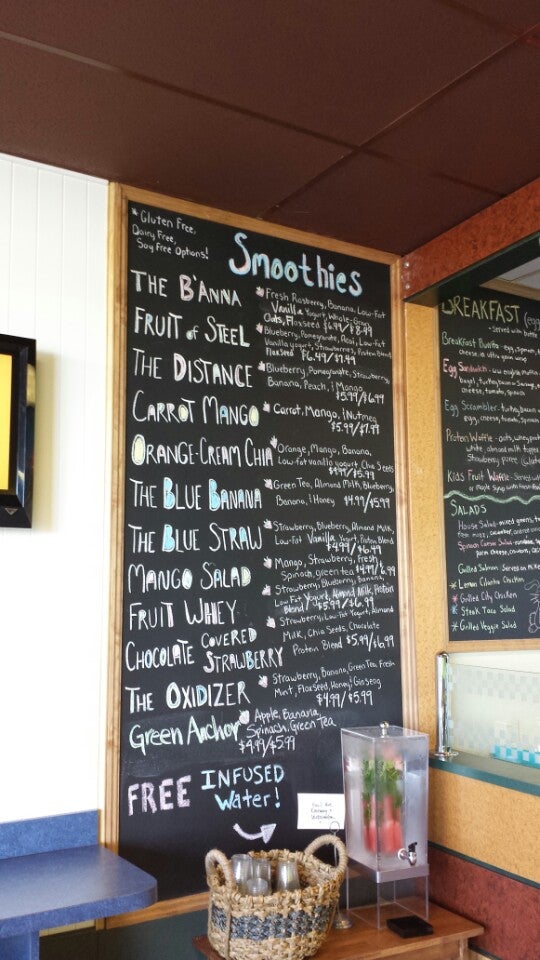 * Gluten Free,
Dairy Free,
Soy Free Options!
Smoothies
THE B'ANNA
Fresh Rasberry, Banana, Low-Fat
Vanilla Yogurt, Whole-Grain
Oats, Flaxseed $6.99/$8.49
FRUIT of STEEL
Blueberry, Pomegranate, Acai, Low-Fat
Vanilla yogurt, Strawberries, Protein Blend
Flaxseed $6.49/$7.99
THE DISTANCE
Blueberry, Pomegranate, Strawberry,
Banana, Peach, & Mango
$5.99/$6.99
CARROT MANGO
Carrot, Mango, & Nutmeg
$5.99/$7.99
ORANGE-CREAM CHIA
Orange, Mango, Banana,
Low-fat vanilla yogurt Chia Seeds
$4.99/$5.99
THE BLUE BANANA
Green Tea, Almond Milk, Blueberry,
Banana, & Honey $4.99/$5.99
THE BLUE STRAW
Strawberry, Blueberry, Almond Milk,
Low-Fat Vanilla Yogurt, Protein Blend
$4.99/$6.99
MANGO SALAD
Mango, Strawberry, Fresh
Spinach, green tea $4.99/6.99
FRUIT WHEY
Strawberry, Blueberry, Banana,
Low-Fat Yogurt, Almond Milk, Protein
Blend $5.99/$6.99
CHOCOLATE COVERED
STRAWBERRY
Strawberry, Low-Fat Yogurt, Almond
Milk, Chia Seeds, Chocolate
Protein Blend $5.99/$6.99
THE OXIDIZER
Strawberry, Banana, Green Tea, Fresh
Mint, Flax Seed, Honey, & Ginseng
$4.99/$5.99
Green Anchor
Apple, Banana,
Spinach, Green Tea
$4.99/$5.99
FREE INFUSED
Water!
BREAKFAST
- Served with
Breakfast Burrito - egg, spinach,
Egg Sandwich
cheese, tomato, spinach
Egg Scrambler
Protein Waffle
Kids Fruit Waffle - Served
SALADS
House Salad - mixed greens,
Spinach Caesar Salad
Grilled Salmon
* Lemon Cilantro Chicken
* Grilled City Chicken
* Steak Taco Salad
* Grilled Veggie Salad